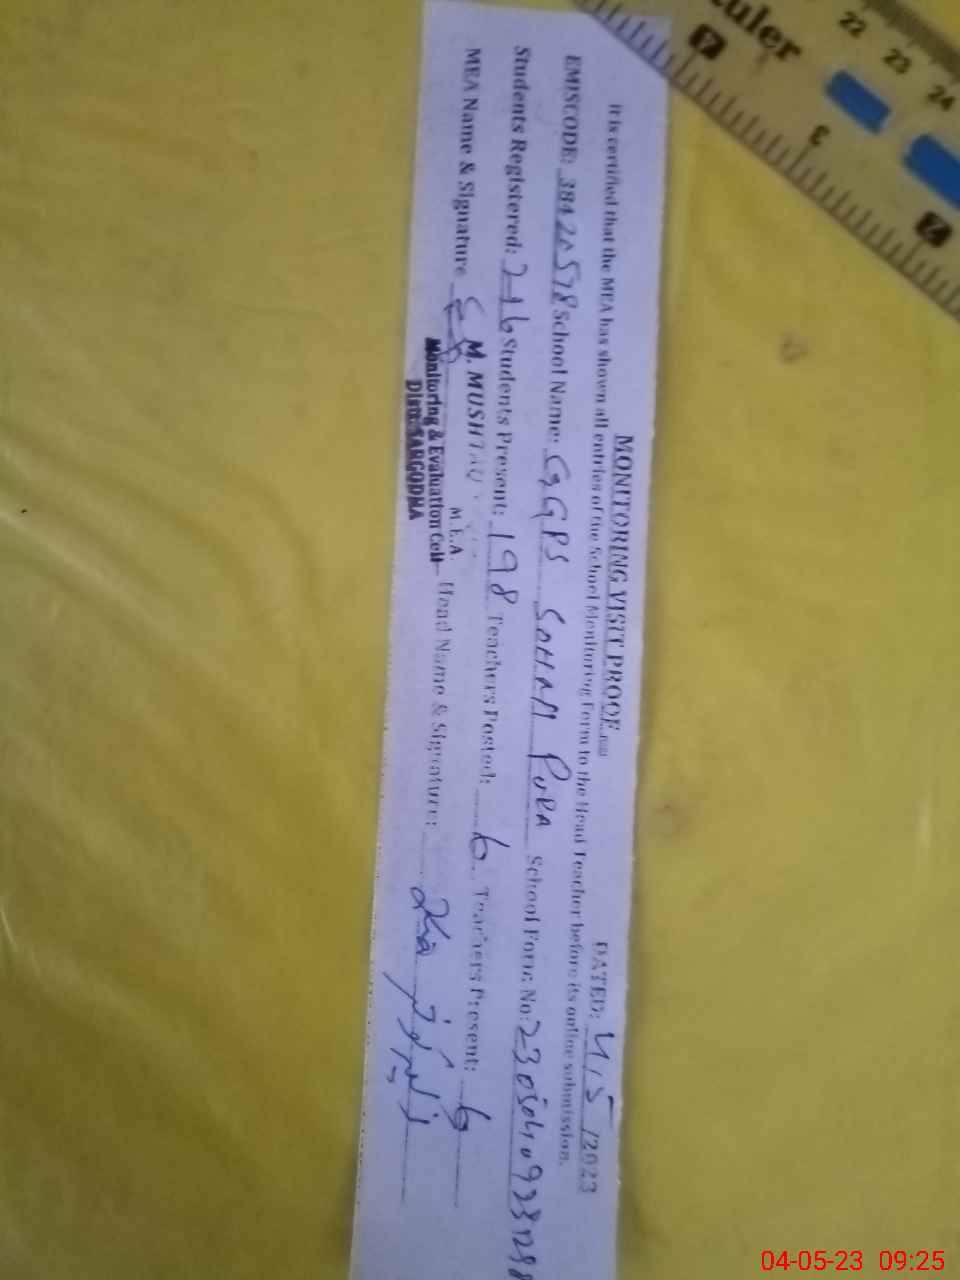 MONITORING VISIT PROOF
DATED: 4/5/2023
It is certified that the MEA has shown all entries of the School Monitoring Form to the Head Teacher before its online submission.
EMISCODE: 38420578 School Name: GGPS SOHAM PURA School Form No: 230504092312
Students Registered: 216 Students Present: 198 Teachers Posted: 6 Teachers Present: 6
MEA Name & Signature M. MUSHTAQ Head Name & Signature:
M.E.A
Monitoring & Evaluation Cell
Distt. SARGODHA
uler
22 23 24
04-05-23 09:25